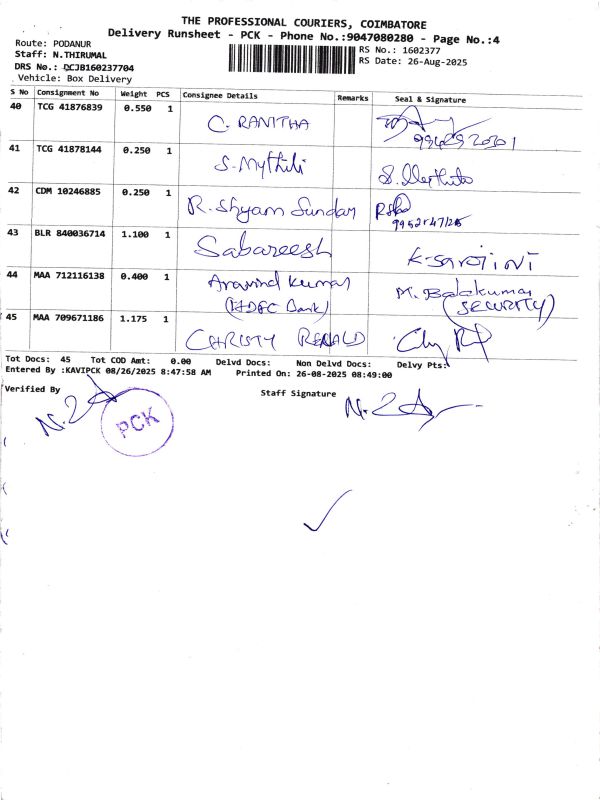 THE PROFESSIONAL COURIERS, COIMBATORE
Delivery Runsheet - PCK - Phone No.:9047080280 - Page No.:4
Route: PODANUR
Staff: N.THIRUMAL
DRS No.: DCJB160237704
Vehicle: Box Delivery
RS No.: 1602377
RS Date: 26-Aug-2025
S No Consignment No Weight PCS Consignee Details Remarks Seal & Signature
40 TCG 41876839 0.550 1 C. RANITHA
41 TCG 41878144 0.250 1 S. Mythili
42 CDM 10246885 0.250 1 R. Shyam Sundar
43 BLR 840036714 1.100 1 Sabareesh K-sarojini
44 MAA 712116138 0.400 1 Aravind Kumar M. Balakumar
(HDFC Bank) (SECURITY)
45 MAA 709671186 1.175 1 CHRISTY RENALD
Tot Docs: 45 Tot COD Amt: 0.00 Delvd Docs: Non Delvd Docs: Delvy Pts:
Entered By :KAVIPCK 08/26/2025 8:47:58 AM Printed On: 26-08-2025 08:49:00
Verified By
Staff Signature
PCK